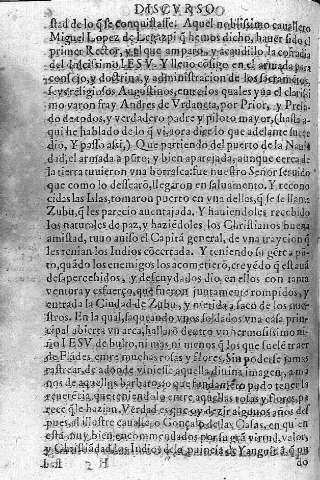 DISCVRSO
stad de lo q̃ se conquistasse. Aquel nobilissimo cauallero
Miguel Lopez de Legazpi q̃ hemos dicho, hauer sido el
primer Rector, y el que amparo, y acaudillo la cofradia
del dulcissimo IESV. Y lleuo cõsigo en el armada para
consejo, y doctrina, y administracion de los sacramẽtos,
seys religiosos Augustinos, entre los quales yua el clarissi
mo varon fray Andres de Vrdaneta, por Prior, y Prela
do de todos, y verdadero padre y piloto mayor, (hasta a
qui he hablado de lo q̃ vi, aora dire lo que adelante suce
dio, Y passo assi,) Que partiendo del puerto de la Naui
dad, el armada a pũto, y bien aparejada, aunque cerca de
la tierra tuuieron vna borrasca: fue nuestro Señor seruido
que como lo dessearõ, llegaron en saluamento. Y recono
cidas las Islas, tomaron puerto en vna dellos, q̃ se le llama
Zubu, q̃ les parecio auentajada. Y hauiendoles recebido
los naturales de paz, y haziẽdoles, los Christianos buena
amistad, tuuo auiso el Capitã general, de vna traycion q̃
les tenian los Indios cõcertada. Y teniendo su gẽte a pũ-
to, quãdo los enemigos los acometierõ, creyẽdo q̃ estauã
desapercebidos, y descuydados dio, en ellos con tanta
ventura y esfuerço, que fueron juntamente rompidos, y
entrada la Ciudad de Zubu, y metida a saco de los nues-
tros. En la qual, saqueando vnos soldados vna casa prin-
cipal abierta vn arca, hallarõ dentro vn hermosissimo ni-
ño IESV de bulto, ni mas ni menos q̃ los que suelẽ traer
de Flãdes, entre muchas rosas y flores, Sin poderse jamas
rastrear de adonde viniesse aquella diuina imagen, a ma
nos de aquellos barbaros: o que fundamẽto pudo tener la
reuerẽcia, que teniendola entre aquellas rosas y flores, pa
rece q̃ le hazian. Verdad es que oy dezir algunos años des
pues, al illustre cauallero Gonçalo de las Casas, en quien
està muy bien encommendados por su grã virtud, valor,
y Christiãdad los Indios de la prouincia de Yanguitlã q̃ quã
2 H
do